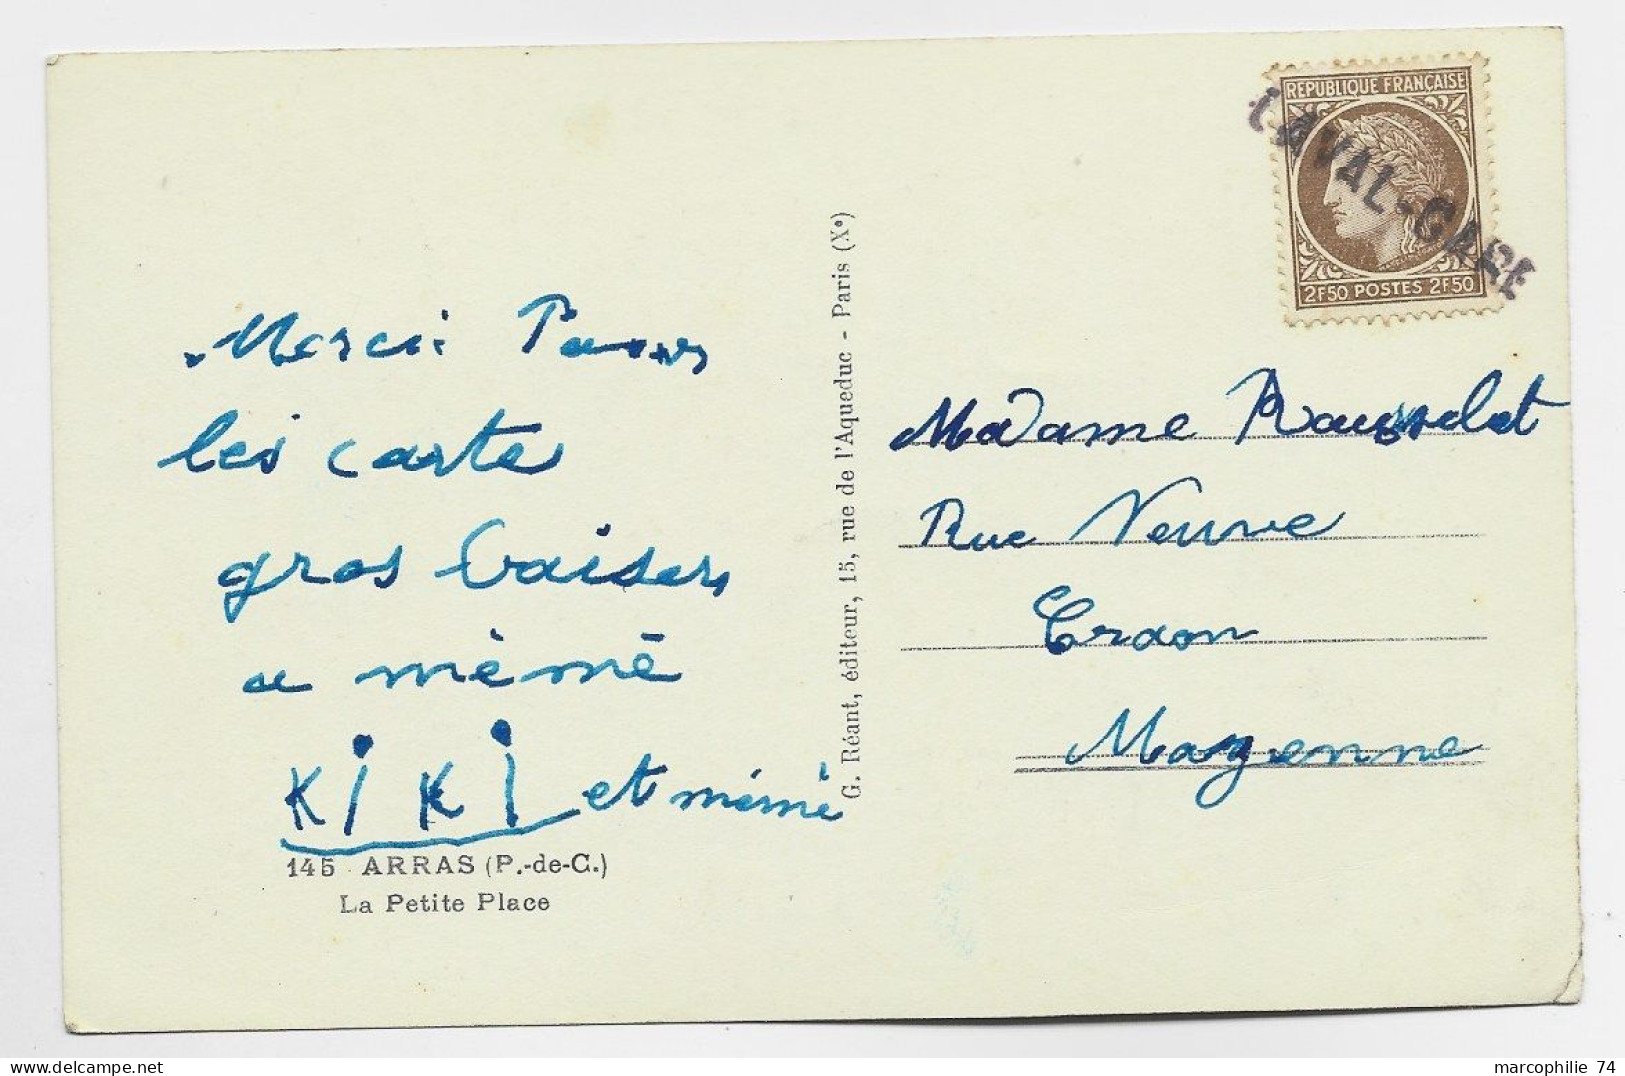 REPUBLIQUE FRANÇAISE
2F50 POSTES 2F50
LAVAL-GARE
Merci Pour
les carte
gros baisers
a mèmé
KiKi et mémé
145 ARRAS (P.-de-C.)
La Petite Place
G. Réant, éditeur, 15, rue de l'Aqueduc - Paris (Xe)
Madame
Rue Neuve
Craon
Mayenne
marcophilie 74